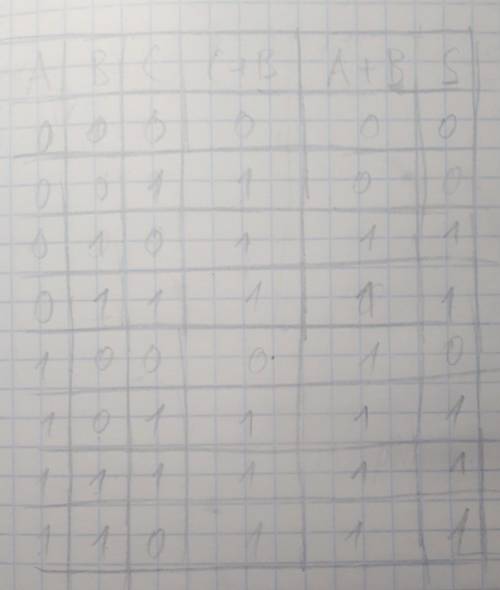 A B C C+B A+B S
0 0 0 0 0 0
0 0 1 1 0 0
0 1 0 1 1 1
0 1 1 1 1 1
1 0 0 0 1 0
1 0 1 1 1 1
1 1 1 1 1 1
1 1 0 1 1 1